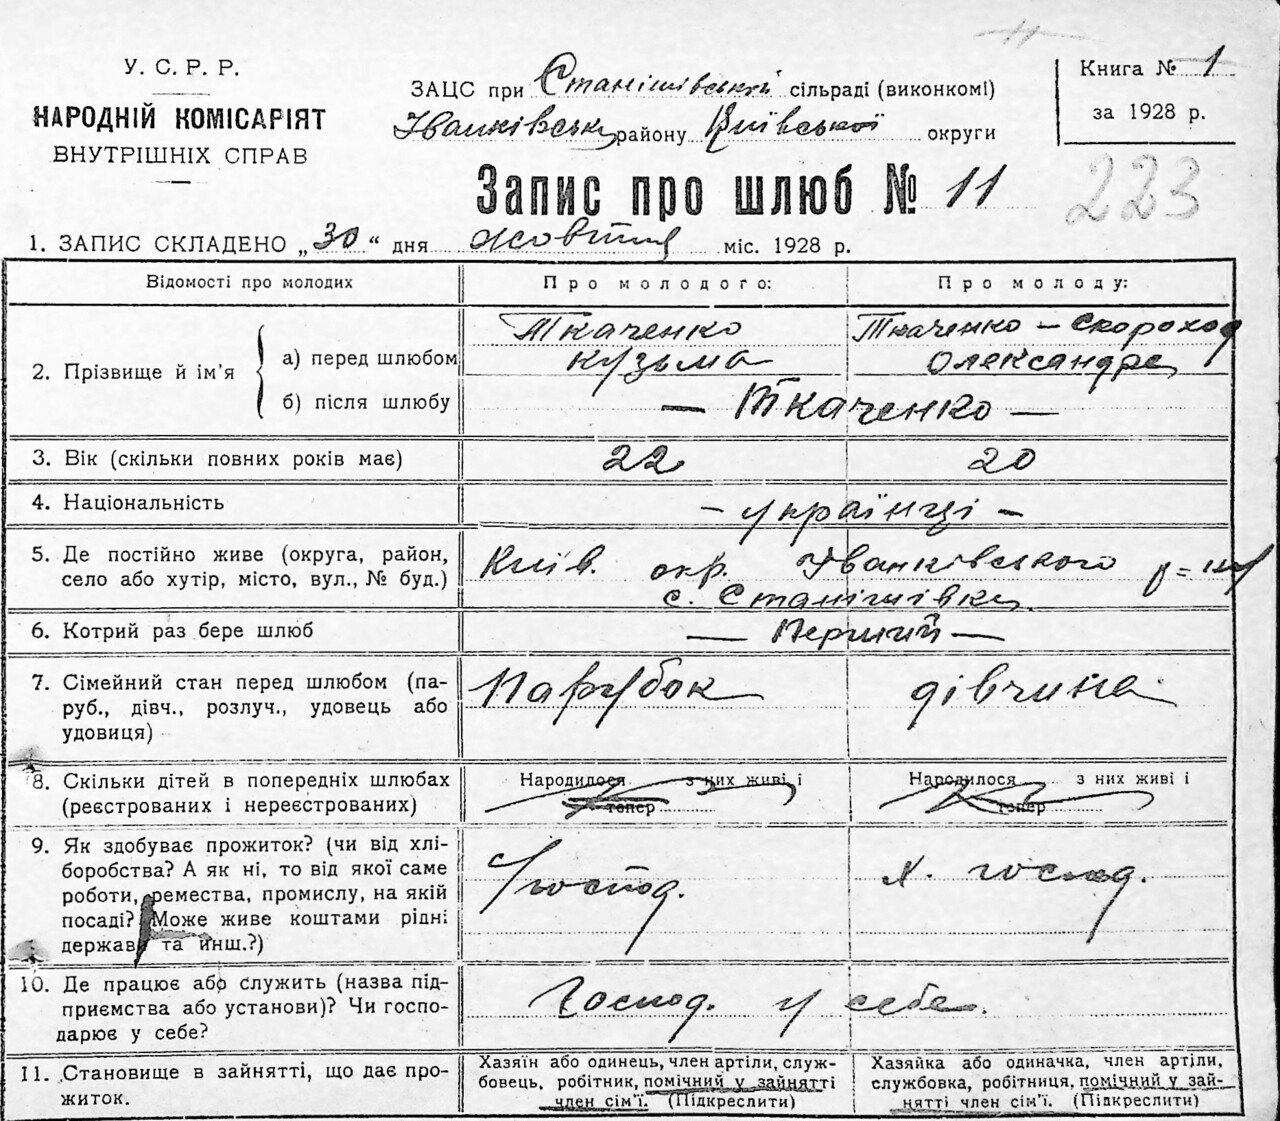 У. С. Р. Р.
НАРОДНІЙ КОМІСАРІЯТ
ВНУТРІШНІХ СПРАВ
ЗАЦС при Станішівській сільраді (виконкомі)
Іванківськ району Київської округи
Книга № 1
за 1928 р.
Запис про шлюб № 11
223
1. ЗАПИС СКЛАДЕНО „30“ дня жовтня міс. 1928 р.
Відомості про молодих
Про молодого:
Про молоду:
2. Прізвище й ім'я
а) перед шлюбом
Ткаченко
Кузьма
Ткаченко - Скороход
Олександра
б) після шлюбу
— Ткаченко —
3. Вік (скільки повних років має)
22
20
4. Національність
- українці -
5. Де постійно живе (округа, район,
село або хутір, місто, вул., № буд.)
Київ. окр. Іванківського
с. Станішівка
6. Котрий раз бере шлюб
— Перший —
7. Сімейний стан перед шлюбом (па-
руб., дівч., розлуч., удовець або
удовиця)
Парубок
дівчина
8. Скільки дітей в попередніх шлюбах
(реєстрованих і нереєстрованих)
Народилося з них живі і
тепер
Народилося з них живі і
тепер
9. Як здобуває прожиток? (чи від хлі-
боробства? А як ні, то від якої саме
роботи, ремества, промислу, на якій
посаді? Може живе коштами рідні
держави та инш.?)
господ.
х. господ.
10. Де працює або служить (назва під-
приємства або установи)? Чи госпо-
дарює у себе?
Господ. у себе.
11. Становище в зайнятті, що дає про-
житок.
Хазяїн або одинець, член артіли, служ-
бовець, робітник, помічний у зайнятті
член сім'ї. (Підкреслити)
Хазяйка або одиначка, член артіли,
службовка, робітниця, помічний у зай-
нятті член сім'ї. (Підкреслити)